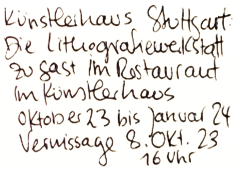 Künstlerhaus Stuttgart:
Die Lithografiewerkstatt
zu Gast im Restaurant
im Künstlerhaus
Oktober 23 bis Januar 24
Vernissage 8. Okt. 23
16 Uhr